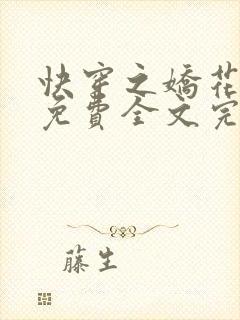 快穿之嬌花
免費全文完
藤生